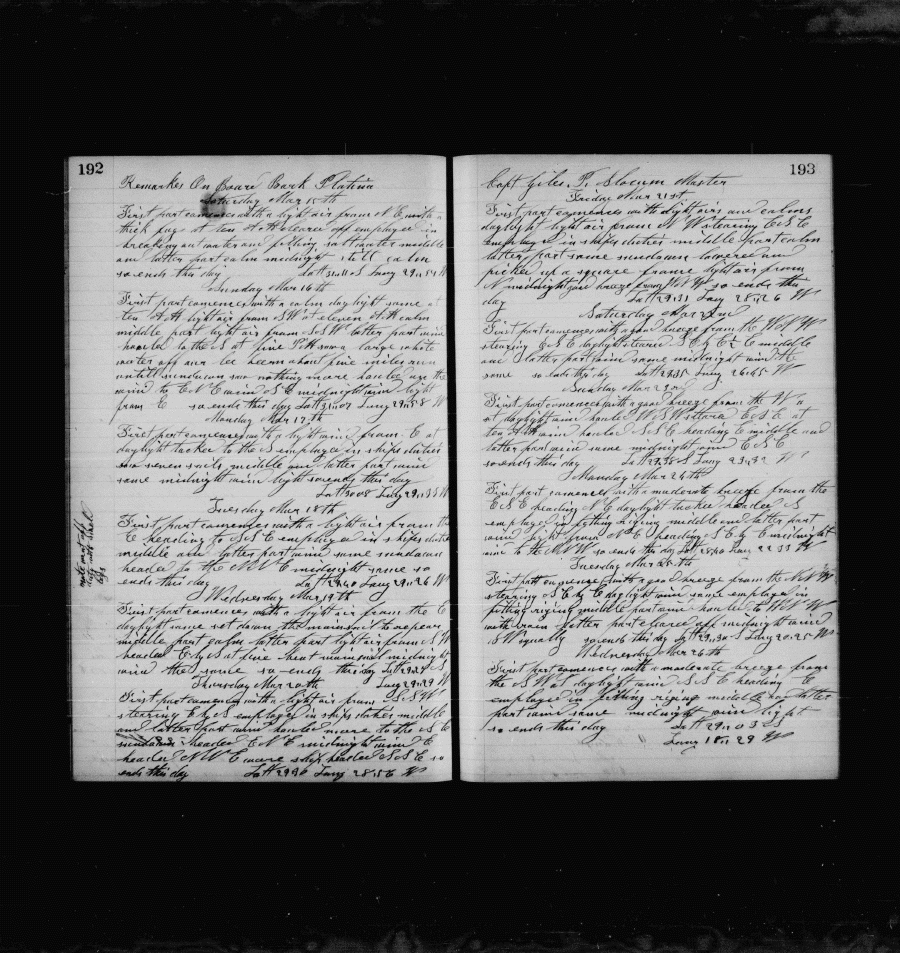 192
Remarkes On Board Bark Platina
Saturday Mar 15th
First part comences with a light air from N E with a
thick fog at ten A.M cleared off employed in
breaking out water and filling salt water middle
and latter part calm midnight still calm
so ends this day Latt 31 11 S Long 29 54 W
Sunday Mar 16th
First part comences with a calm day light same at
ten A.M light air from S W at eleven A.M calm
middle part light air from S S W latter part wind
hauled to the S at five P.M saw a large white
water off our lee beam about five miles run
untill sundown saw nothing more hauled up the
wind to E N E wind S E midnight wind light
from E so ends this day Latt 31 07 Long 29 58 W
Monday Mar 17th
First part comences with a light wind from E at
daylight tacked to the S employed in ships duties
saw seven sails middle and latter part wind
same midnight wind light so ends this day
Latt 30 08 Long 29 33 W
Tuesday Mar 18th
First part comences with a light air from the
E heading to S S E employed in ships duties
middle and latter part wind same sundown
headed to the N N E midnight same so
ends this day Latt 29 40 Long 29 26 W
Wednesday Mar 19th
First part comences with a light air from the E
daylight same set down the mainsail to repair
middle part calm latter part light air from S W
headed E by S at five bent mainsail midnight
wind the same so ends this day Latt 29 29 S
Thursday Mar 20th Long 29 29 W
First part comences with a light air from S S W
stearing E by S employed in ships duties middle
and latter part wind hauled more to the S E
sundown headed E N E midnight wind E
headed N N E wore ship headed S S E so
ends this day Latt 29 30 Long 28 56 W
193
Capt Giles P. Slocum Master
Friday Mar 21st
First part comences with light airs and calms
daylight light air from N W stearing E S E
employed in ships duties middle part calm
latter part same sundown lowered and
picked up a square frame light air from
N midnight good breeze from W N W so ends this
day Latt 29 31 Long 28 26 W
Saturday Mar 22nd
First part comences with a good breeze from the W N W
stearing E S E daylight steared S E by E ½ E middle
and latter part wind same midnight wind the
same so ends this day Latt 29 35 Long 26 45 W
Sunday Mar 23rd
First part comences with a good breeze from the W N
at daylight wind hauled W S W steard E S E at
ten A.M wind hauled S S E heading E middle and
latter part wind same midnight wind E S E
so ends this day
Monday Mar 24th
First part comences with a moderate breeze from the
E S E heading N E daylight tacked headed S
employed in fitting riging middle and latter part
wind light from N E heading S E by E midnight
wind to the N N W so ends this day
Tuesday Mar 25th
First part comences with a good breeze from the N N W
stearing S E by E daylight wind same employed in
fitting riging middle part wind hauled to W N W
with rain latter part cleared off midnight wind
S W squally so ends this day Latt 29 30 S Long 20 25 W
Wednesday Mar 26th
First part comences with a moderate breeze from
the S W at daylight wind S S E heading E
employed in fitting riging middle and latter
part wind same midnight wind light
so ends this day Latt 29 03 S
Long 18 29 W